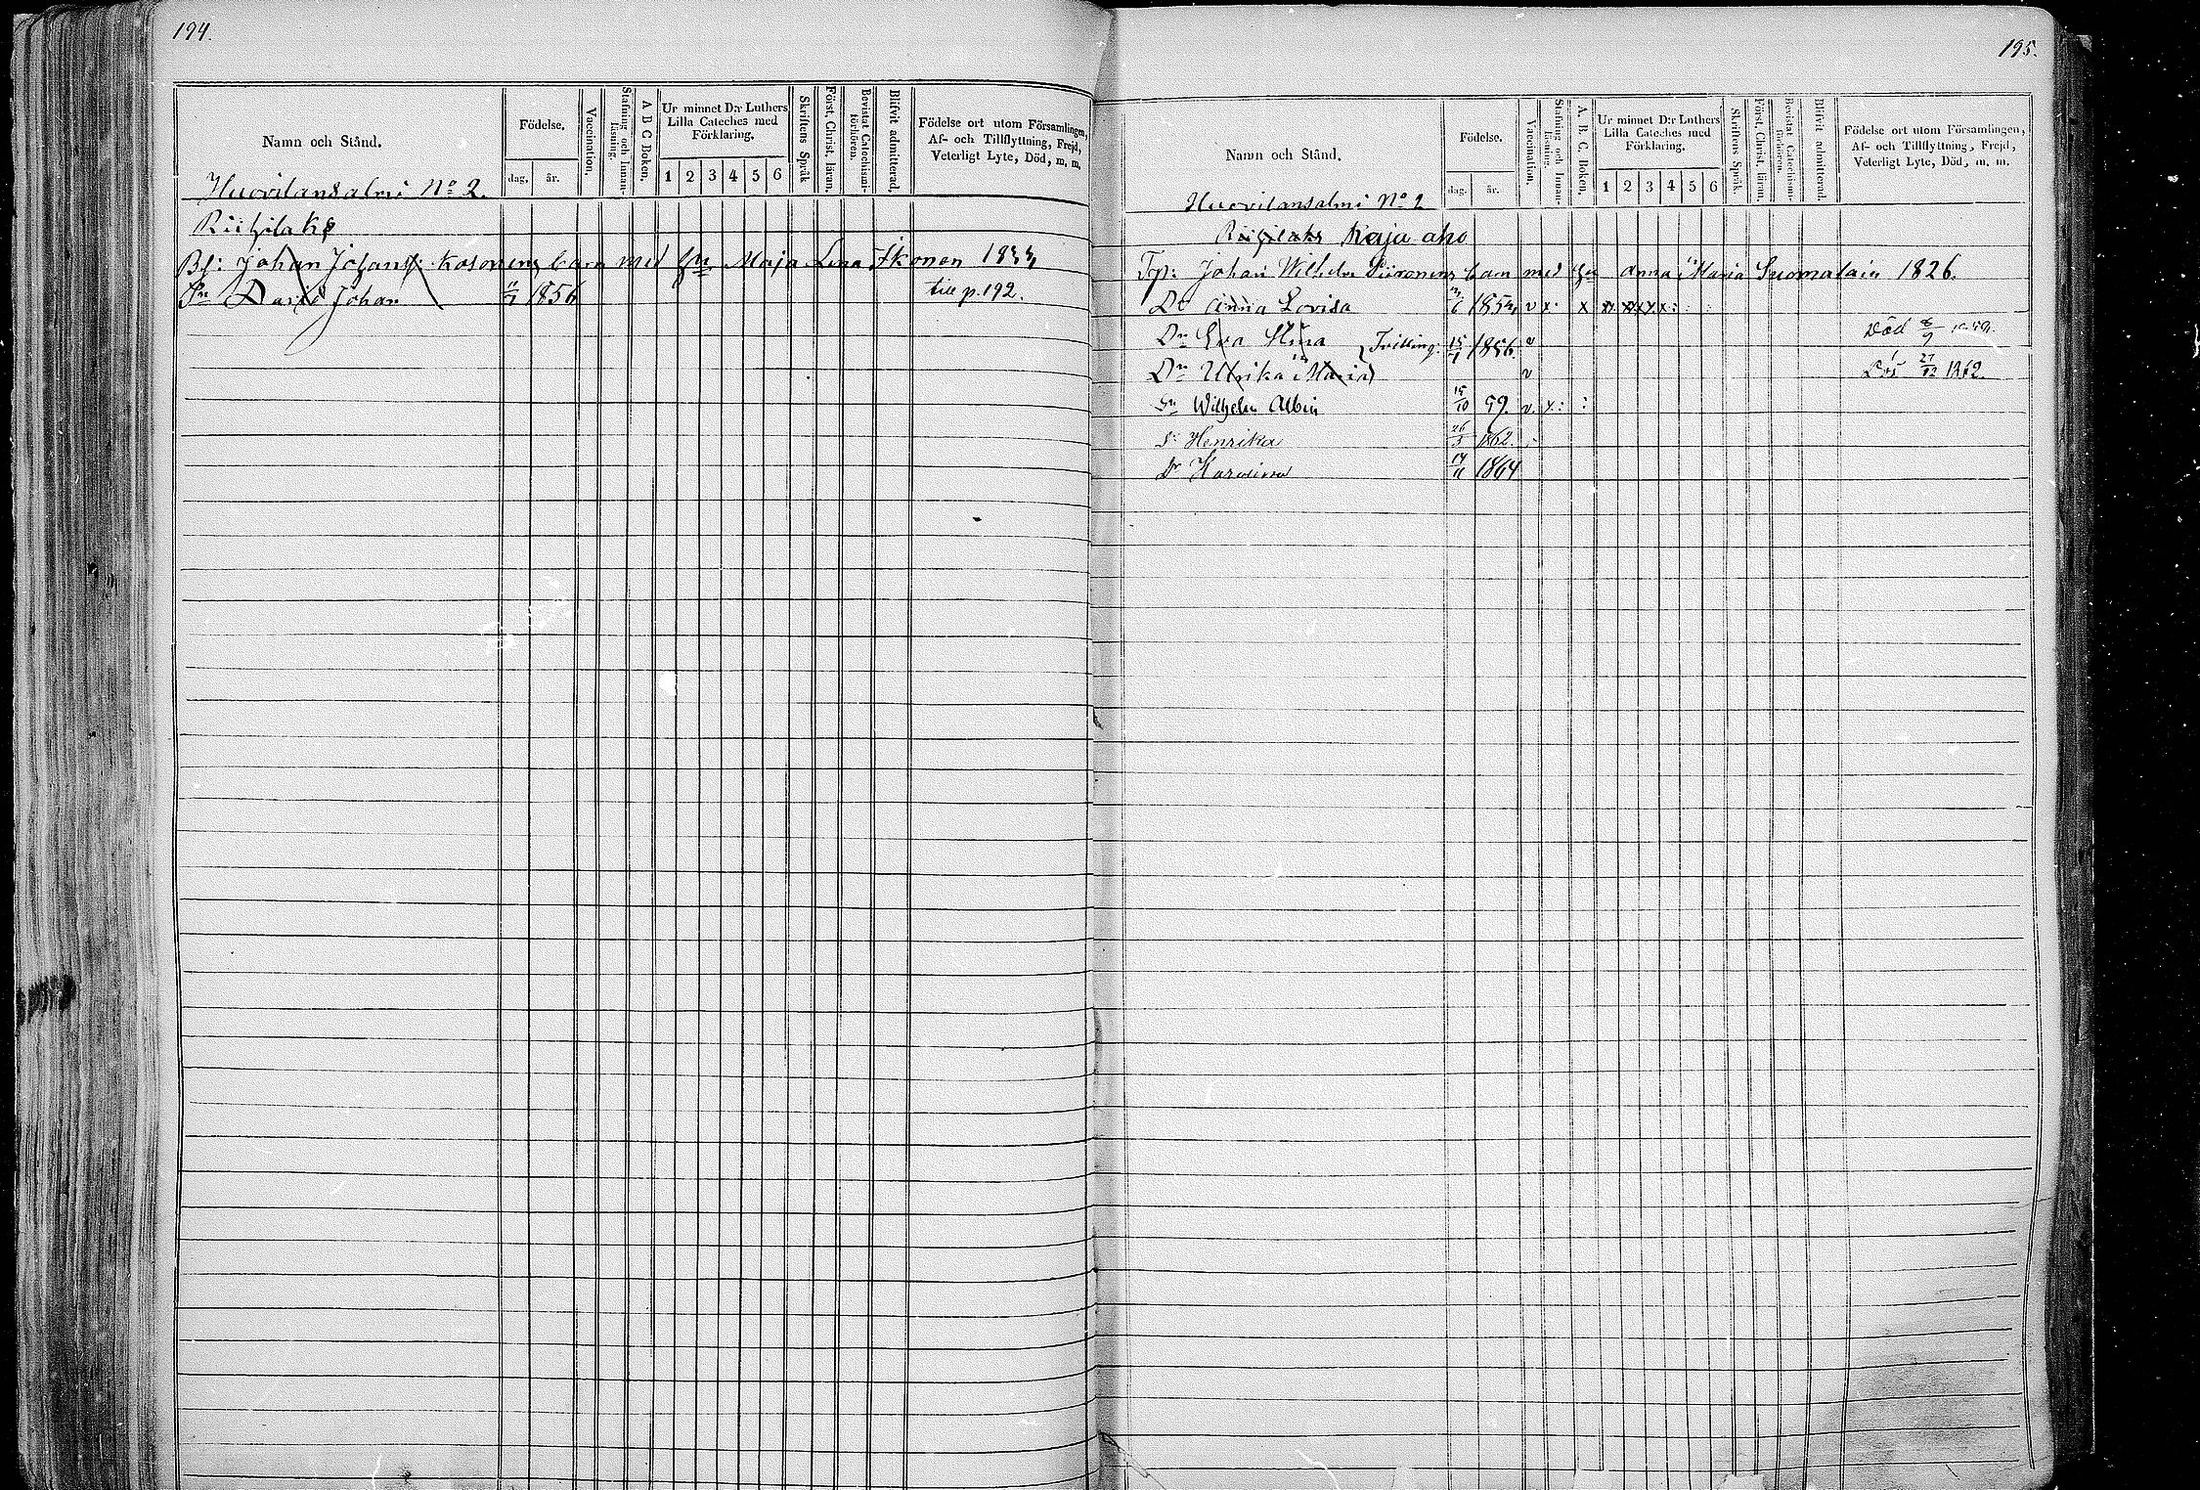 194.
Namn och Stånd.
Födelse.
dag.
år.
Vaccination.
Stafning och Innan-läsning.
A B C Boken.
Ur minnet D:r Luthers
Lilla Cateches med
Förklaring.
1 2 3 4 5 6
Skriftens Språk
Först. Christ. läran.
Bevistat Catechismi-förhören.
Blifvit admitterad.
Födelse ort utom Församlingen,
Af- och Tillflyttning, Frejd,
Veterligt Lyte, Död, m. m.
Huovilansalmi No 2.
Johan Kosonens barn med Maja Lena Ikonen
Sn David Johan 11/7 1856 till p. 192.
195.
Namn och Stånd.
Födelse.
dag.
år.
Vaccination.
Stafning och Innan-läsning.
A. B. C. Boken.
Ur minnet D:r Luthers
Lilla Cateches med
Förklaring.
1 2 3 4 5 6
Skriftens Språk.
Först. Christ. läran.
Bevistat Catechismi-förhören.
Blifvit admitterad.
Födelse ort utom Församlingen,
Af- och Tillflyttning, Frejd,
Veterligt Lyte, Död, m. m.
Huovilansalmi No 2
Kaja aho
Johan Wilhelm Piironens barn med Anna Maria Suomalain 1826.
Dr Anna Lovisa v x x x x x x
Dr Eva Stina Tvilling. 15/1 1856. v Död
Dr Ulrika Maria v Död 27/12 1862.
Sn Wilhelm Albin 15/10 59. v. x
Henrika 26/5 1862.
Dr Karolina 14/11 1864